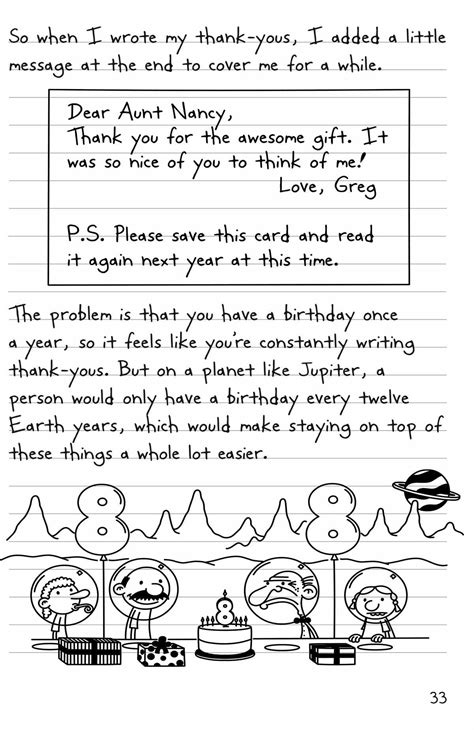 So when I wrote my thank-yous, I added a little
message at the end to cover me for a while.
Dear Aunt Nancy,
Thank you for the awesome gift. It
was so nice of you to think of me!
Love, Greg
P.S. Please save this card and read
it again next year at this time.
The problem is that you have a birthday once
a year, so it feels like you're constantly writing
thank-yous. But on a planet like Jupiter, a
person would only have a birthday every twelve
Earth years, which would make staying on top of
these things a whole lot easier.
8
8
8
33